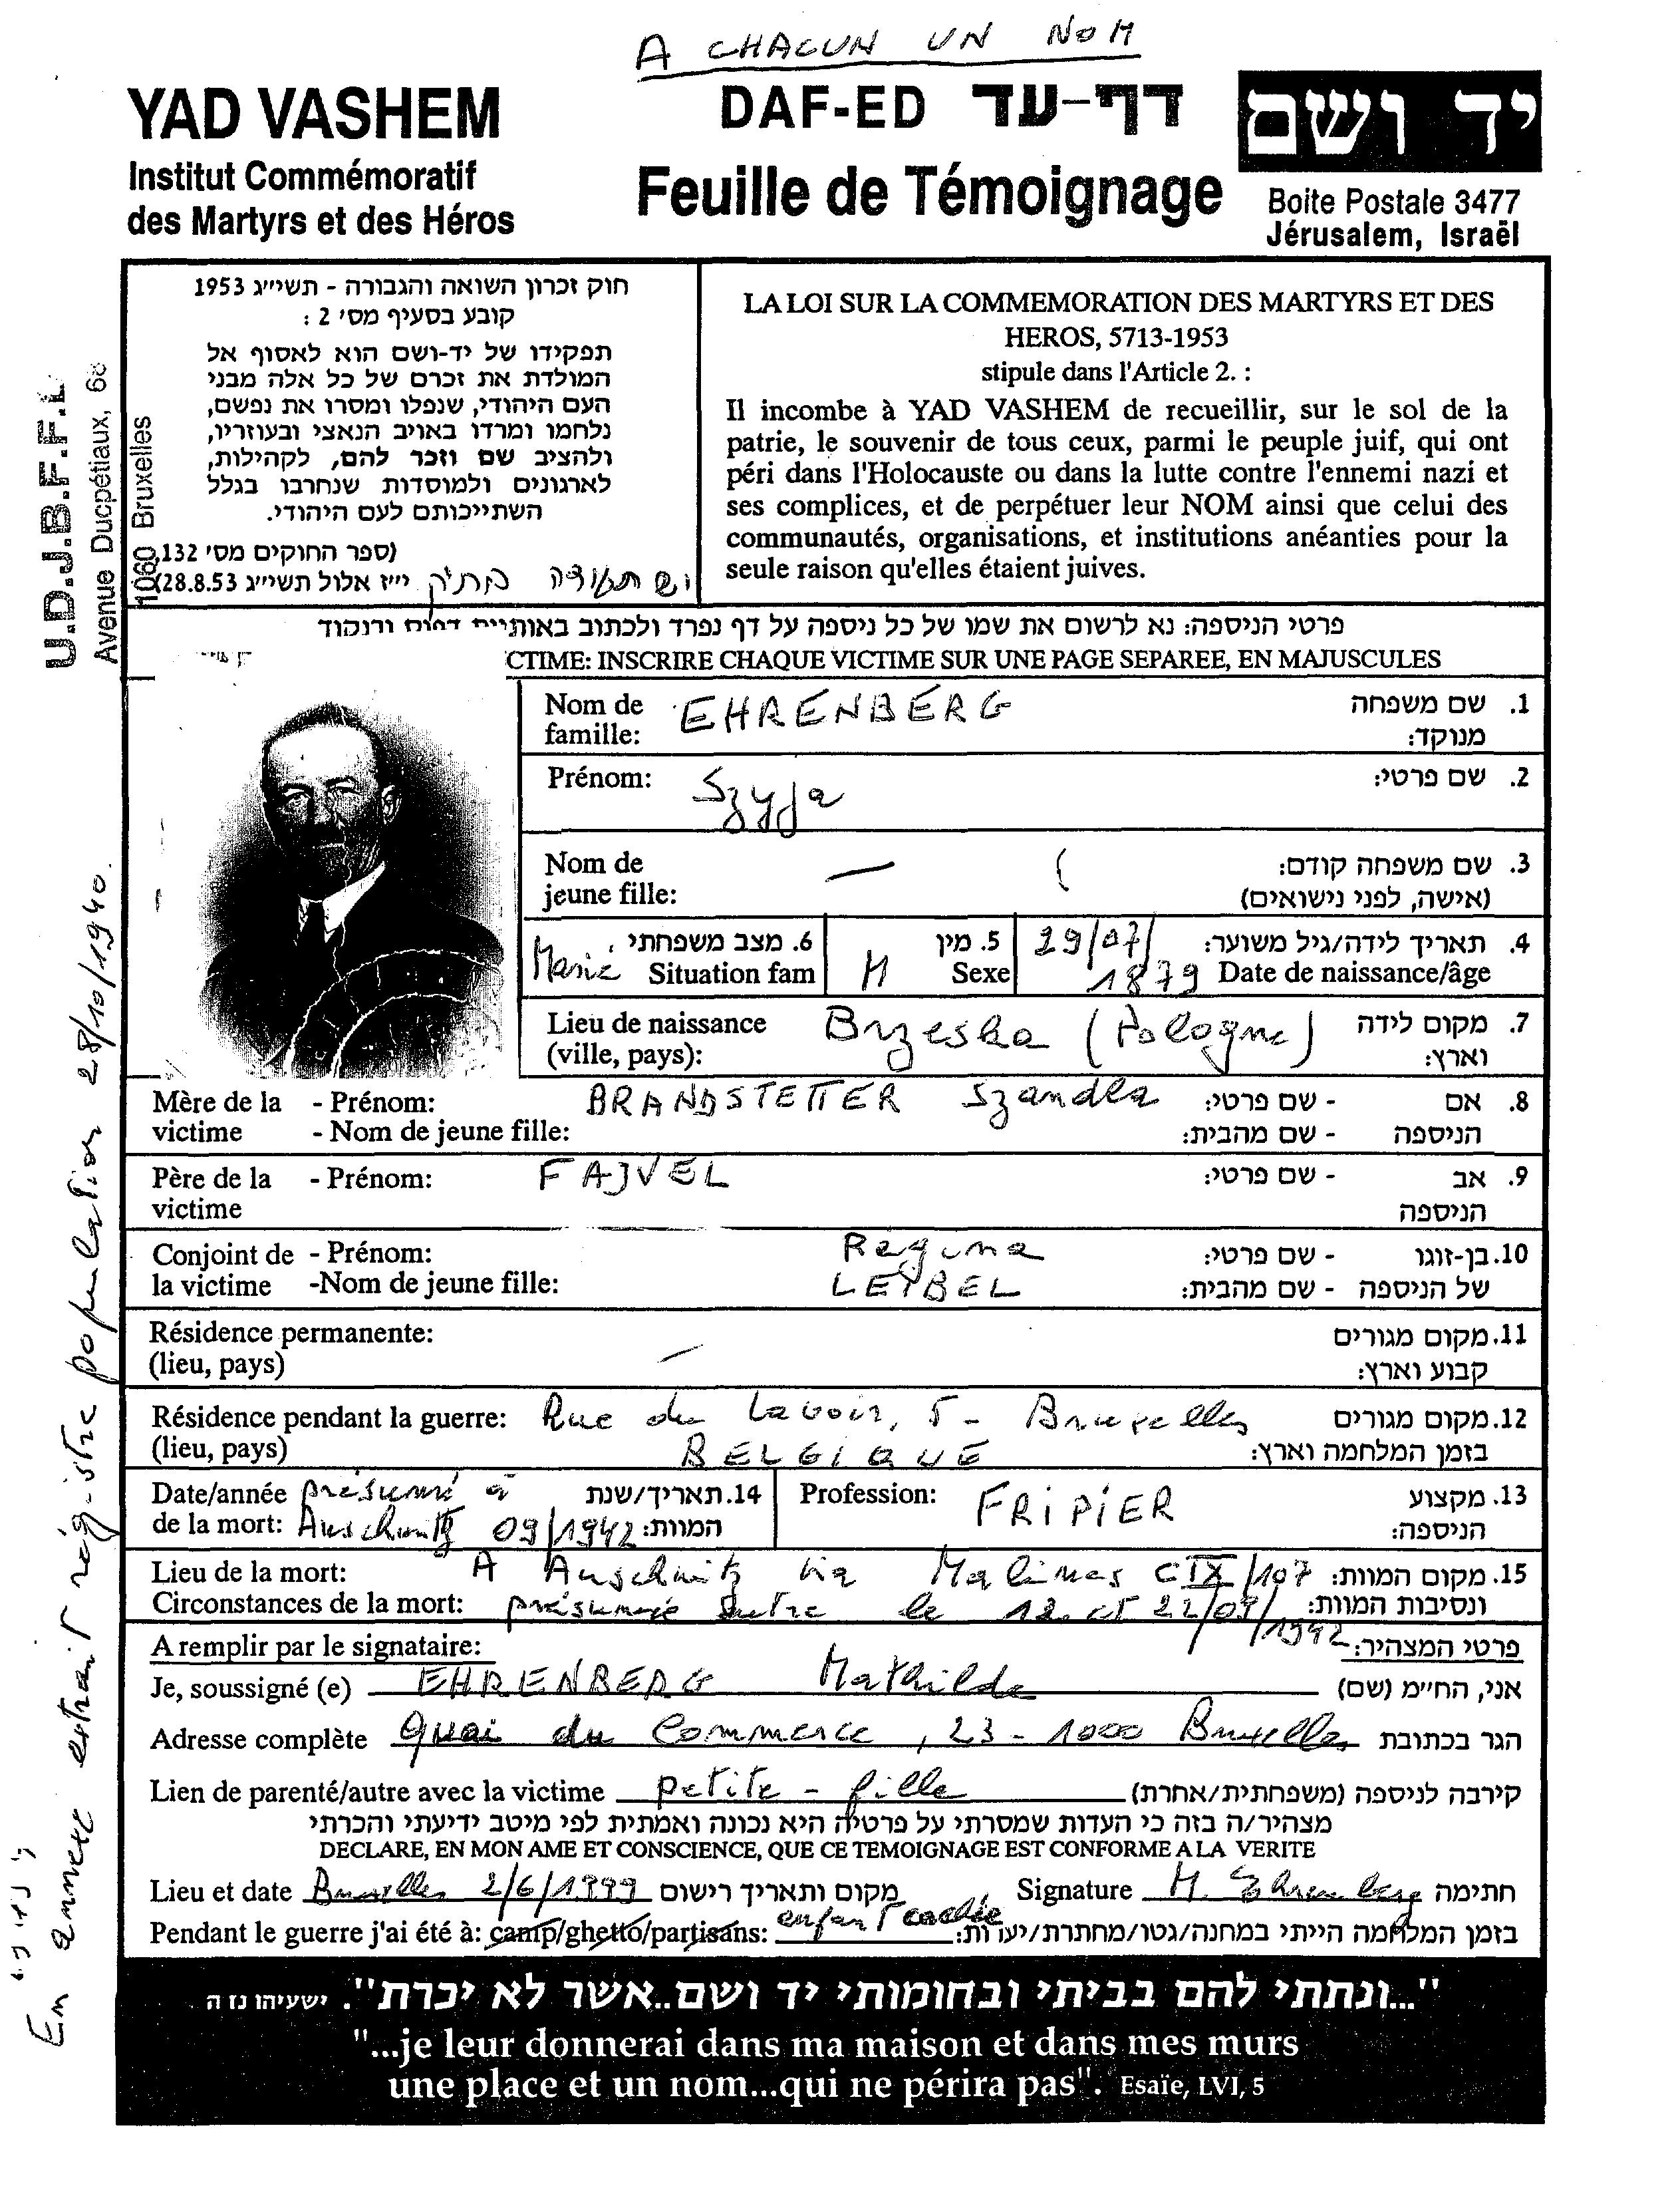 A CHACUN UN NOM
YAD VASHEM
Institut Commémoratif
des Martyrs et des Héros
DAF-ED דף-עד
Feuille de Témoignage
יד ושם
Boite Postale 3477
Jérusalem, Israël
U.D.J.B.F.F.L.
Avenue Ducpétiaux, 68
1060 Bruxelles
חוק זכרון השואה והגבורה - תשי"ג 1953
קובע בסעיף מס' 2 :
תפקידו של יד-ושם הוא לאסוף אל
המולדת את זכרם של כל אלה מבני
העם היהודי, שנפלו ומסרו את נפשם,
נלחמו ומרדו באויב הנאצי ובעוזריו,
ולהציב שם וזכר להם, לקהילות,
לארגונים ולמוסדות שנחרבו בגלל
השתייכותם לעם היהודי.
(ספר החוקים מס' 132,
י"ז אלול תשי"ג 28.8.53)
LA LOI SUR LA COMMEMORATION DES MARTYRS ET DES
HEROS, 5713-1953
stipule dans l'Article 2. :
Il incombe à YAD VASHEM de recueillir, sur le sol de la
patrie, le souvenir de tous ceux, parmi le peuple juif, qui ont
péri dans l'Holocauste ou dans la lutte contre l'ennemi nazi et
ses complices, et de perpétuer leur NOM ainsi que celui des
communautés, organisations, et institutions anéanties pour la
seule raison qu'elles étaient juives.
פרטי הניספה: נא לרשום את שמו של כל ניספה על דף נפרד ולכתוב באותיות דפוס ובניקוד
CTIME: INSCRIRE CHAQUE VICTIME SUR UNE PAGE SEPAREE, EN MAJUSCULES
Nom de famille: EHRENBERG 1. שם משפחה מנוקד:
Prénom: Szyja 2. שם פרטי:
Nom de jeune fille: — 3. שם משפחה קודם: (אישה, לפני נישואים)
Marié 6. מצב משפחתי Situation fam M 5. מין Sexe 29/07/1879 4. תאריך לידה/גיל משוער: Date de naissance/âge
Lieu de naissance (ville, pays): Brzeska (Pologne) 7. מקום לידה וארץ:
Mère de la victime - Prénom: - Nom de jeune fille: BRANDSTETTER Szandla 8. אם הניספה - שם פרטי: - שם מהבית:
Père de la victime - Prénom: FAJVEL 9. אב הניספה - שם פרטי:
Conjoint de la victime - Prénom: Regina -Nom de jeune fille: LEIBEL 10. בן-זוגו של הניספה - שם פרטי: - שם מהבית:
Résidence permanente: (lieu, pays) — 11. מקום מגורים קבוע וארץ:
Résidence pendant la guerre: (lieu, pays) Rue du Lavoir, 5 - Bruxelles BELGIQUE 12. מקום מגורים בזמן המלחמה וארץ:
Date/année de la mort: présumé à Auschwitz 09/1942 14. תאריך/שנת המוות: Profession: FRIPIER 13. מקצוע הניספה:
Lieu de la mort: A Auschwitz via Malines CIX/107 15. מקום המוות:
Circonstances de la mort: présumée entre le 12 et 22/09/1942 ונסיבות המוות:
A remplir par le signataire: פרטי המצהיר:
Je, soussigné (e) EHRENBERG Mathilde אני, החי"מ (שם)
Adresse complète Quai du Commerce, 23 - 1000 Bruxelles הגר בכתובת
Lien de parenté/autre avec la victime petite-fille קירבה לניספה (משפחתית/אחרת)
מצהיר/ה בזה כי העדות שמסרתי על פרטיה היא נכונה ואמתית לפי מיטב ידיעתי והכרתי
DECLARE, EN MON AME ET CONSCIENCE, QUE CE TEMOIGNAGE EST CONFORME A LA VERITE
Lieu et date Bruxelles 2/6/1999 מקום ותאריך רישום Signature M. Ehrenberg חתימה
Pendant le guerre j'ai été à: camp/ghetto/partisans: enfant cachée בזמן המלחמה הייתי במחנה/גטו/מחתרת/יערות:
"...ונתתי להם בביתי ובחומותי יד ושם..אשר לא יכרת". ישעיהו נז ה
"...je leur donnerai dans ma maison et dans mes murs
une place et un nom...qui ne périra pas". Esaïe, LVI, 5
En annexe extrait régistre population 28/10/1940.